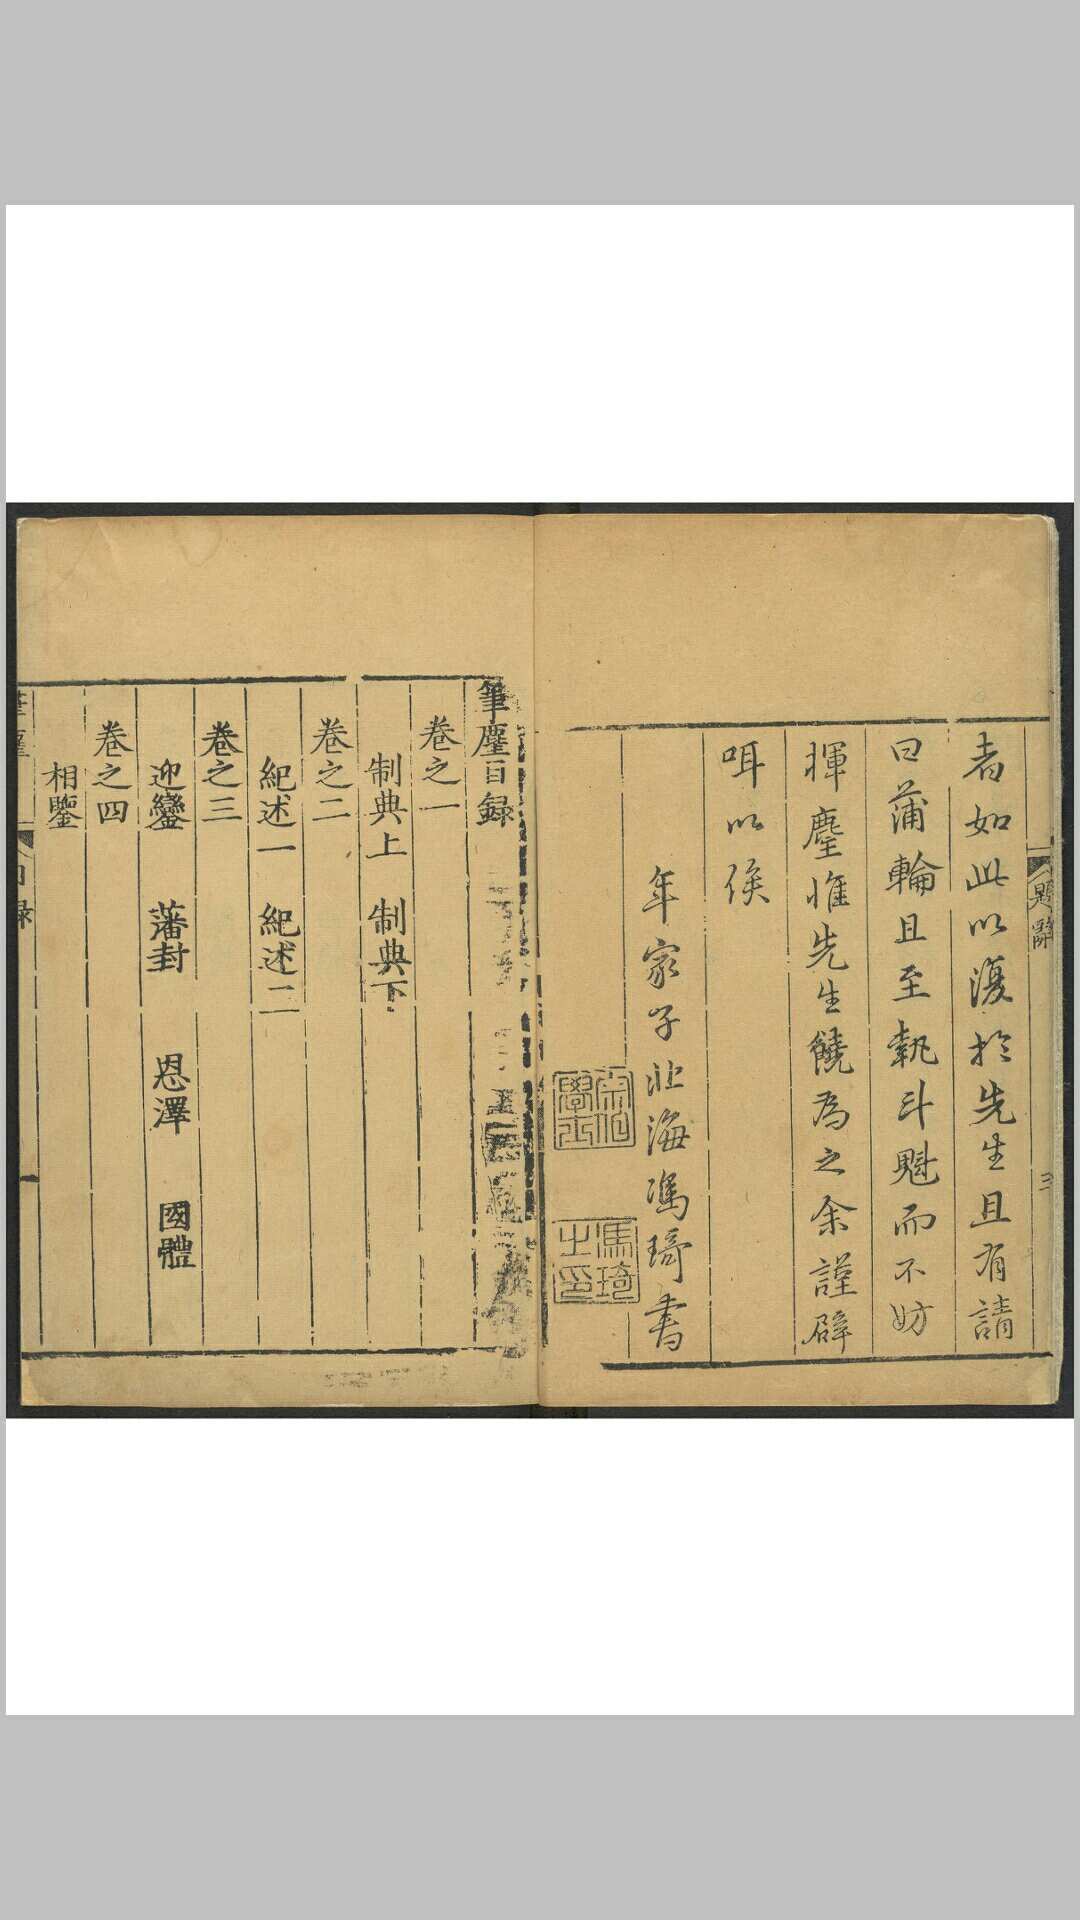 題辭
者如此以復於先生且有請
曰蒲輪且至執斗魁而不妨
揮麈惟先生饒為之余謹辟
咡以俟
年家子北海馮琦書
宗伯學士
馮琦之印
筆麈目録
卷之一
制典上 制典下
卷之二
紀述一 紀述二
卷之三
迎鑾 藩封 恩澤 國體
卷之四
相鑒
筆麈 目録